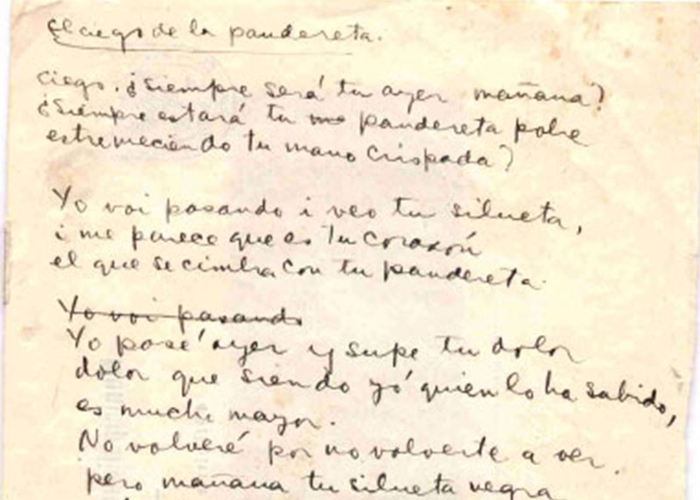 El ciego de la pandereta.
Ciego. ¿Siempre será tu ayer mañana?
¿Siempre estará tu pandereta pobre
estremeciendo tu mano crispada?
Yo voi pasando i veo tu silueta,
i me parece que es tu corazón
el que se cimbra con tu pandereta.
Yo voi pasando
Yo pasé ayer y supe tu dolor
dolor que siendo yó quien lo ha sabido,
es mucho mayor.
No volveré por no volverte a ver.
pero mañana tu silueta negra